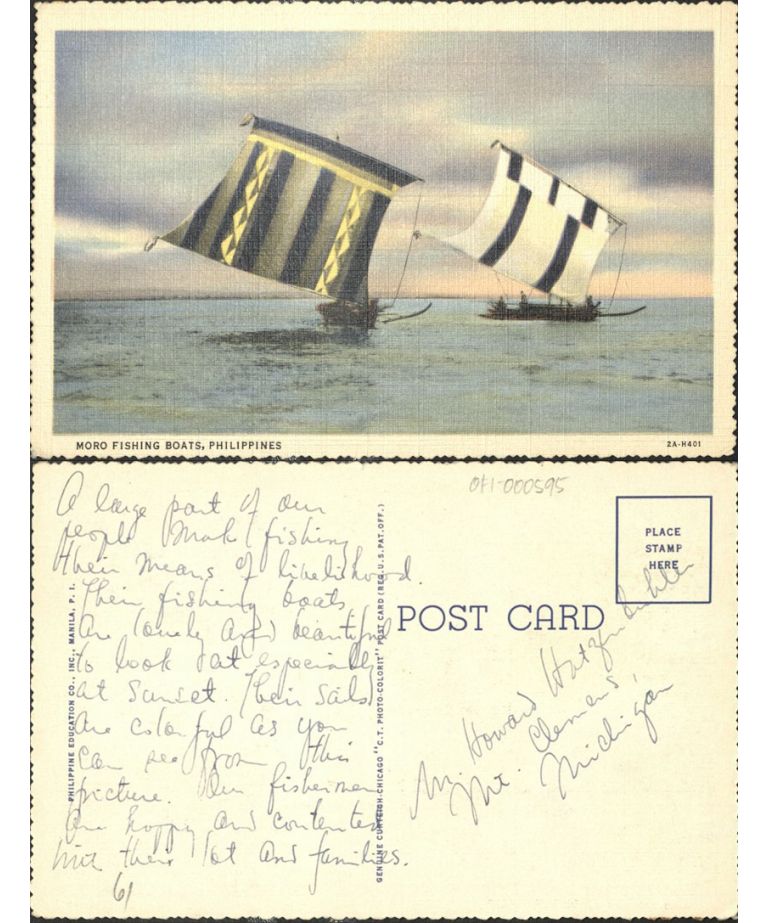 MORO FISHING BOATS, PHILIPPINES
2A-H401
OFI-000595
A large part of our
people mak fishing
their means of livelihood.
Their fishing boats
are lovely and beautiful
to look at especially
at sunset. Their sails
are colorful as you
can see from this
picture. Our fishermen
are happy and contented
with their lot and families.
61
PHILIPPINE EDUCATION CO., INC., MANILA, P. I.
GENUINE CURTEICH-CHICAGO "C.T. PHOTO-COLORIT" POST CARD (REG. U.S. PAT. OFF.)
POST CARD
PLACE
STAMP
HERE
Mr. Howard
Mt. Clemens,
Michigan